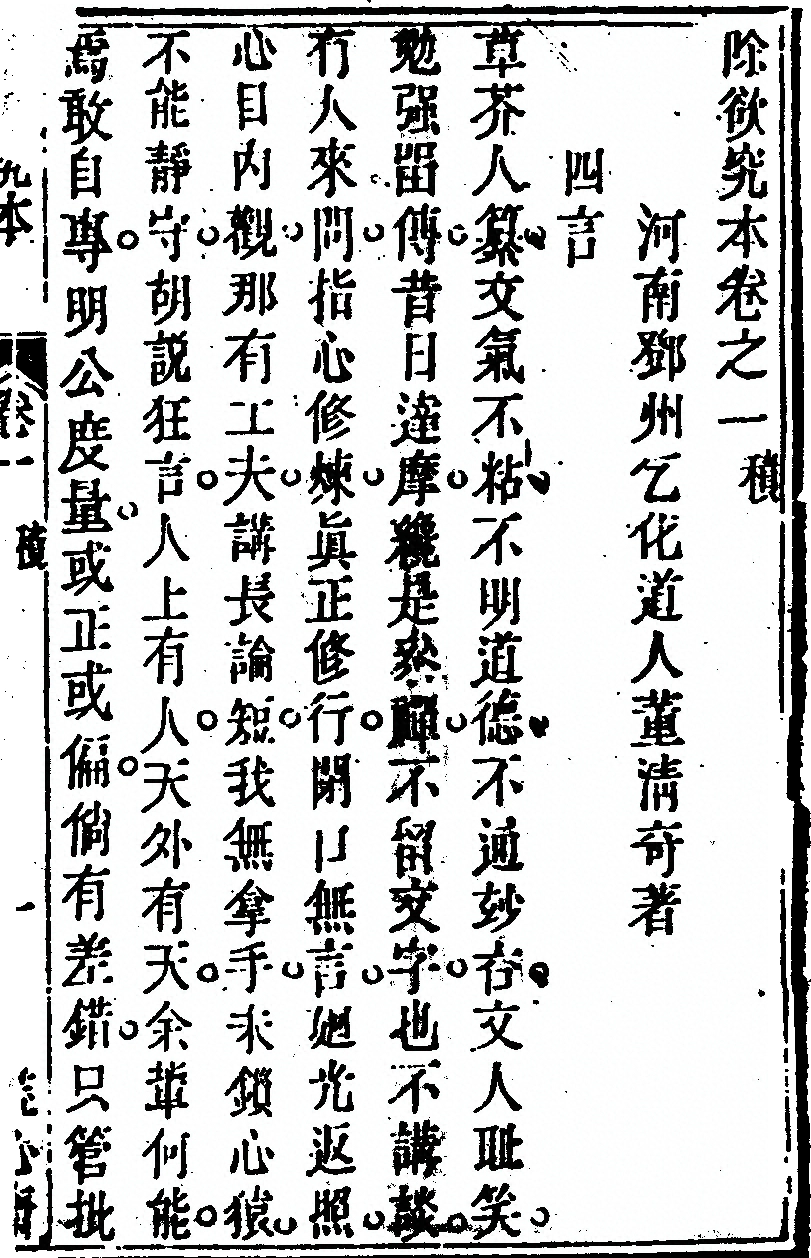 除欲究本卷之一 積
河南鄧州乞化道人董清奇著
四言
草芥人纂文氣不粘不明道德不通妙右文人耻笑
勉强畱傳昔日達摩纔是參禪不留文字也不講談
有人來問指心修煉眞正修行閉口無言廻光返照
心目內觀那有工夫講長論短我無拿手未鎖心猿
不能靜守胡說狂言人上有人天外有天余輩何能
焉敢自專明公度量或正或偏倘有差錯只管批
究本 卷一 積 一